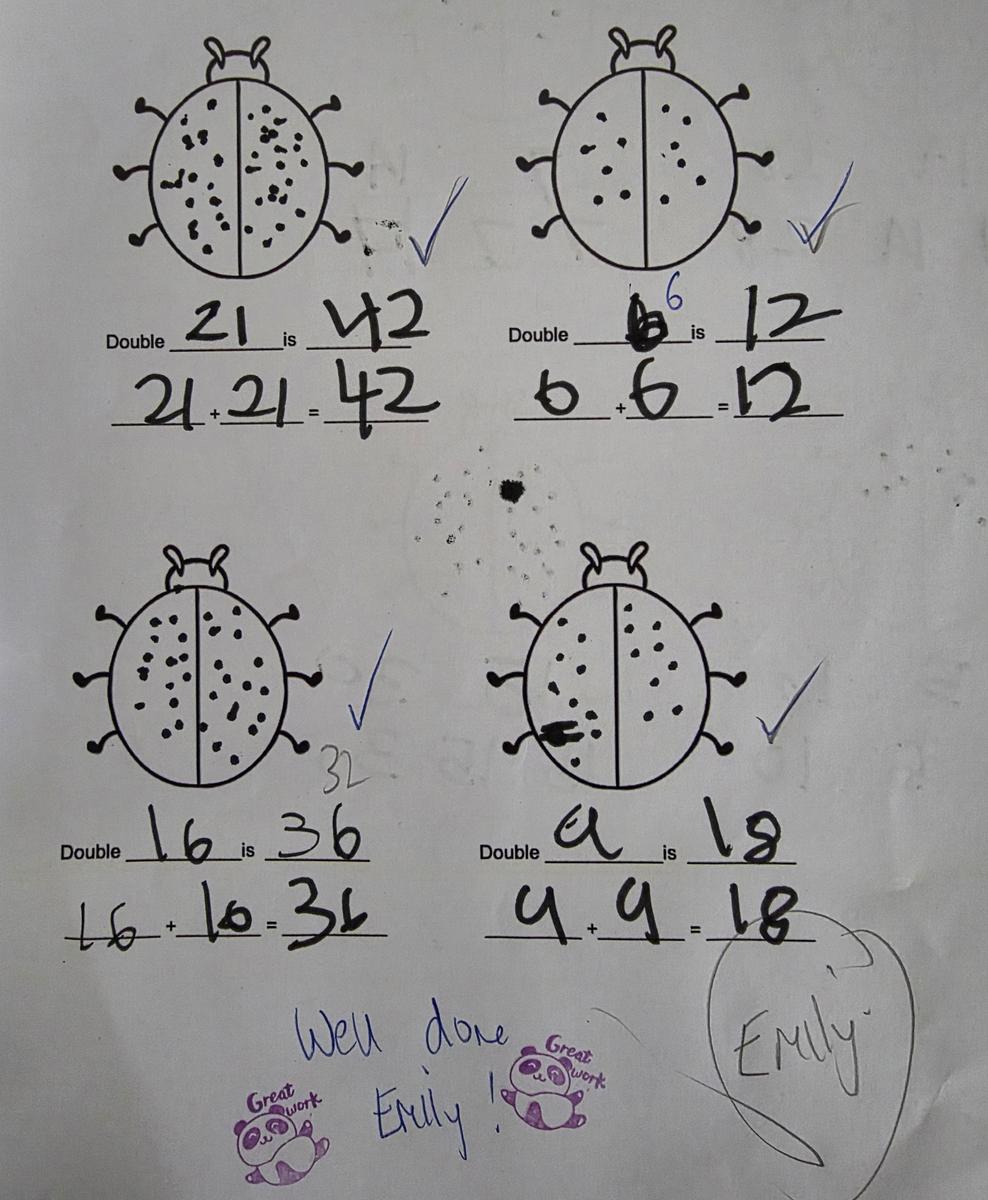 Double 21 is 42
21 + 21 = 42
Double 6 6 is 12
6 + 6 = 12
32
Double 16 is 36
16 + 16 = 36
Double 9 is 18
9 + 9 = 18
Well done
Emily!
Great work
Great work
Emily